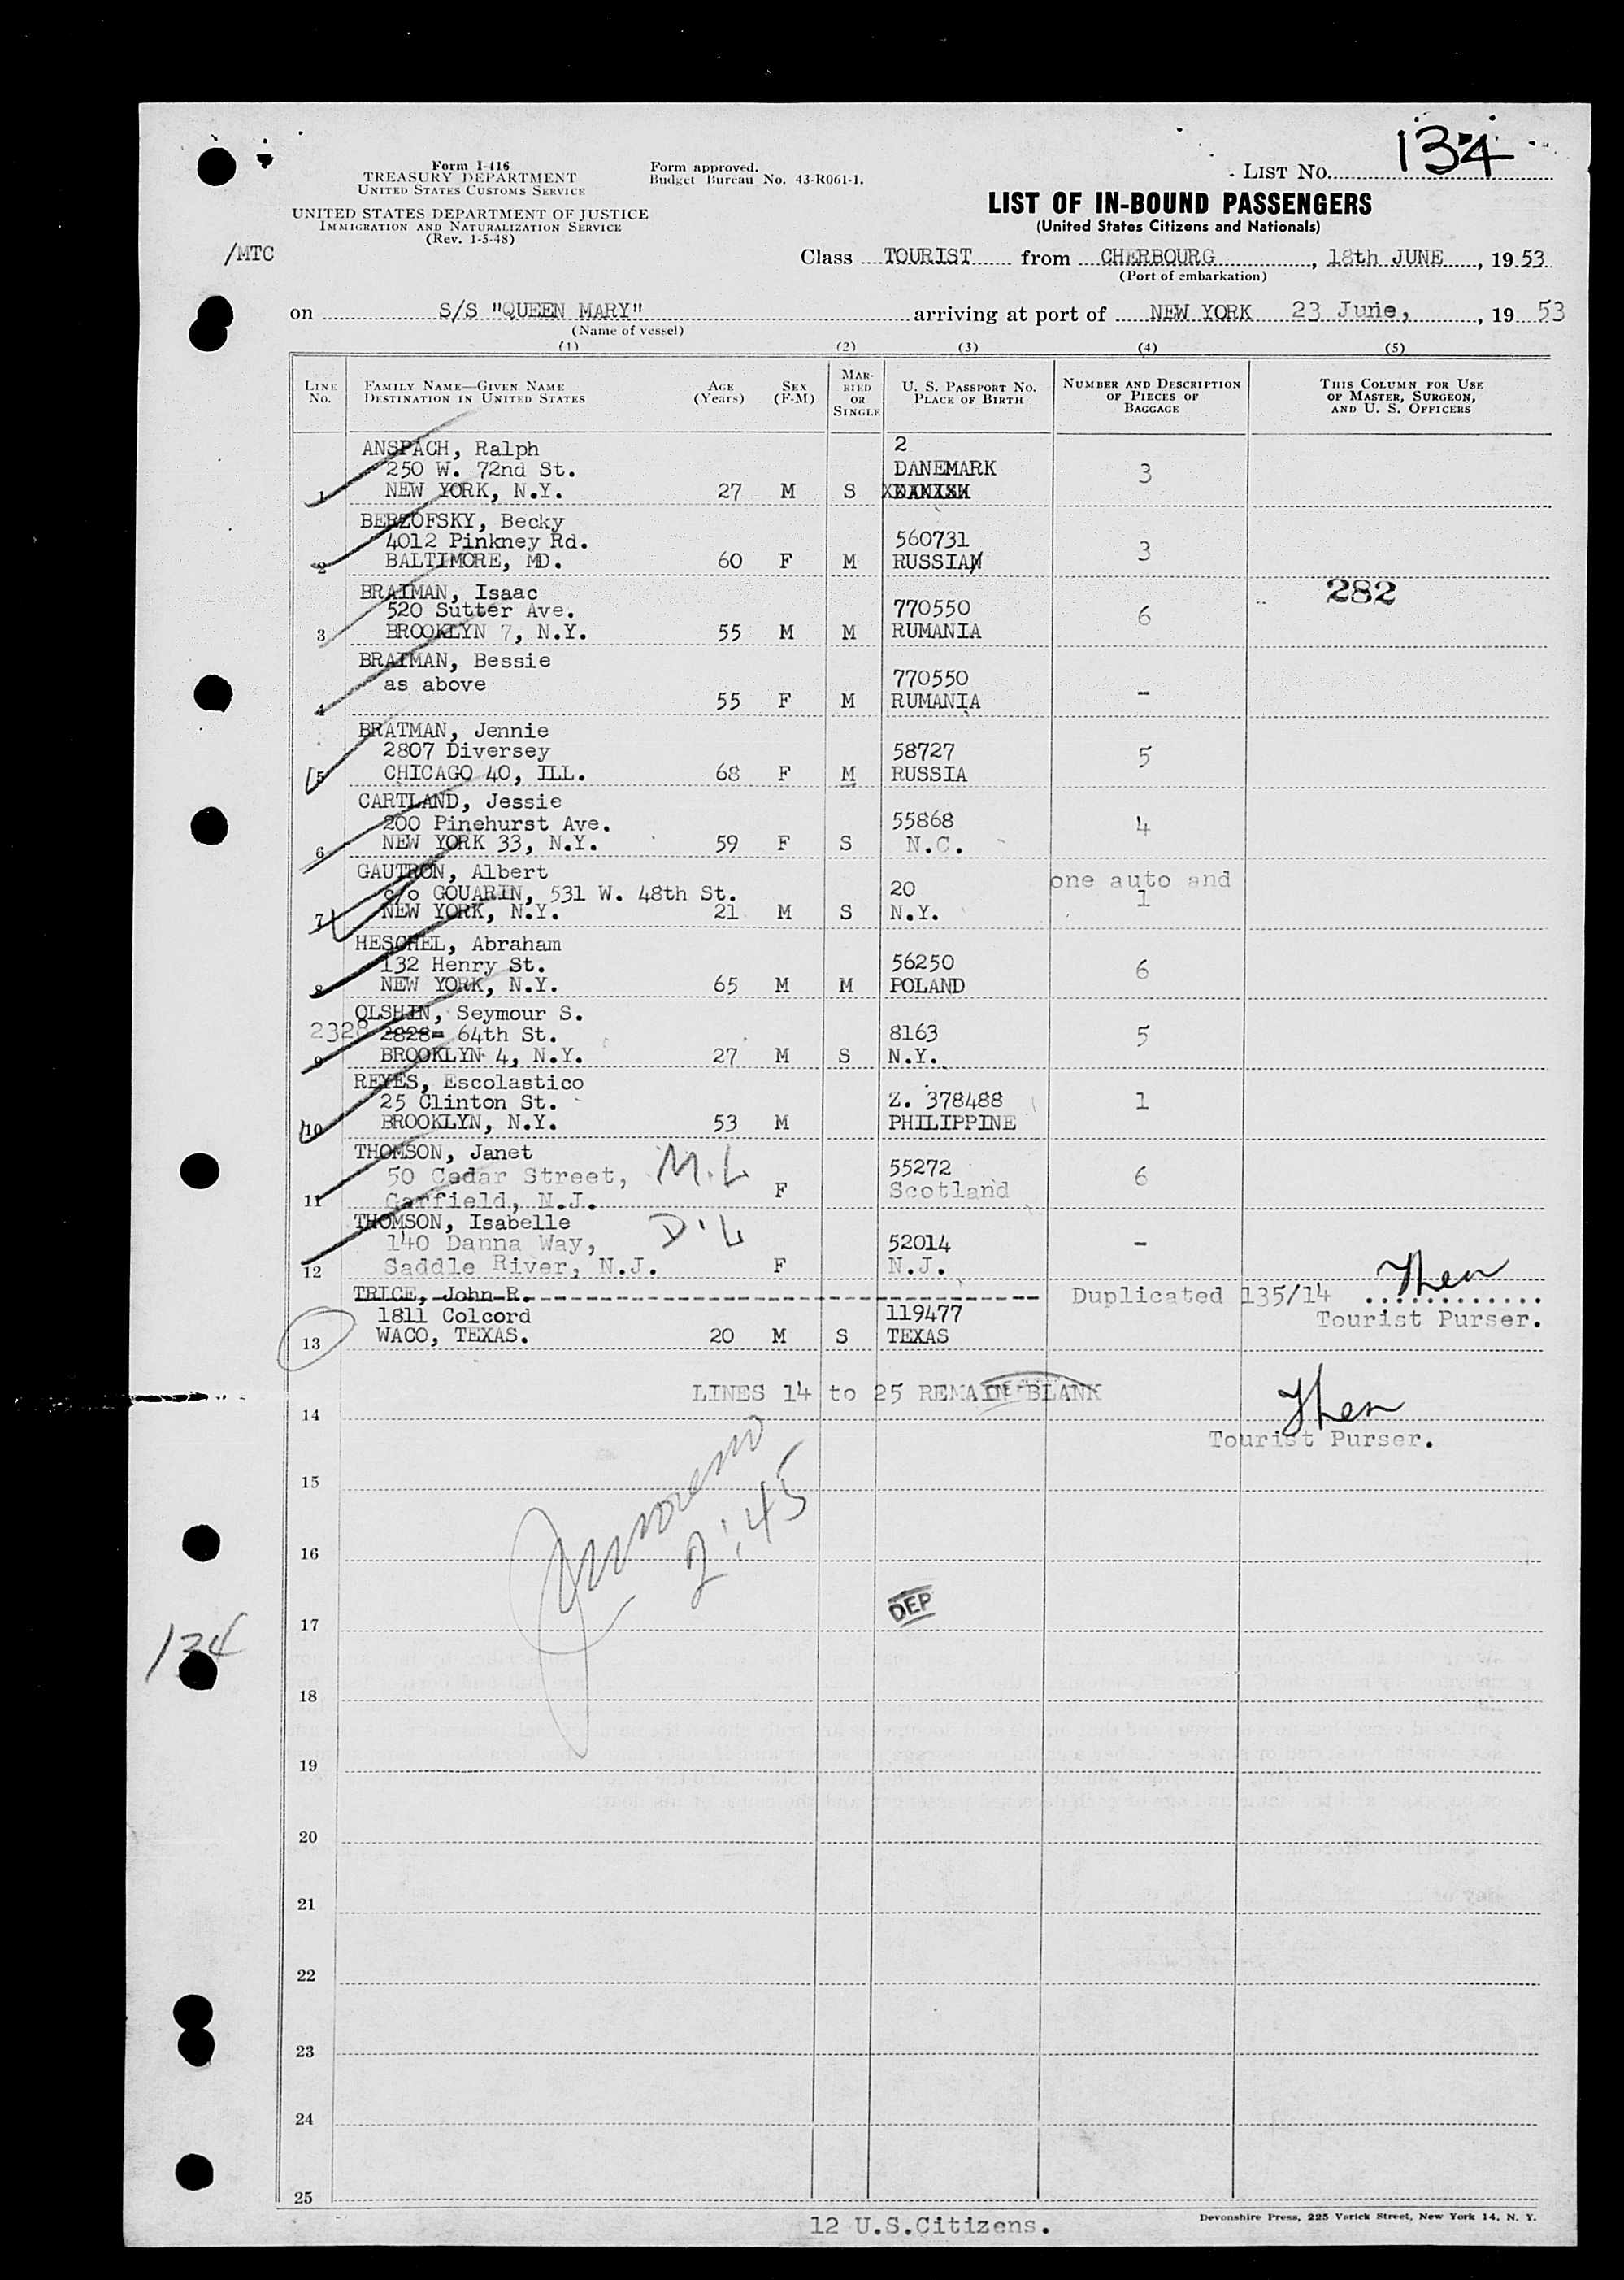 LIST No. 134
Form I-416
TREASURY DEPARTMENT
UNITED STATES CUSTOMS SERVICE
Form approved.
Budget Bureau No. 43-R061-1.
UNITED STATES DEPARTMENT OF JUSTICE
IMMIGRATION AND NATURALIZATION SERVICE
(Rev. 1-5-48)
LIST OF IN-BOUND PASSENGERS
(United States Citizens and Nationals)
/MTC
Class TOURIST from CHERBOURG, 18th JUNE, 1953
(Port of embarkation)
on S/S "QUEEN MARY" arriving at port of NEW YORK 23 June, 1953
(Name of vessel)
(1) (2) (3) (4) (5)
LINE No. FAMILY NAME—GIVEN NAME DESTINATION IN UNITED STATES AGE (Years) SEX (F-M) MARRIED OR SINGLE U. S. PASSPORT No. PLACE OF BIRTH NUMBER AND DESCRIPTION OF PIECES OF BAGGAGE THIS COLUMN FOR USE OF MASTER, SURGEON, AND U. S. OFFICERS
ANSPACH, Ralph 2
250 W. 72nd St. DANEMARK 3
1 NEW YORK, N.Y. 27 M S
BERZOFSKY, Becky
4012 Pinkney Rd. 560731 3
2 BALTIMORE, MD. 60 F M RUSSIA
BRAIMAN, Isaac 282
520 Sutter Ave. 770550 6
3 BROOKLYN 7, N.Y. 55 M M RUMANIA
BRAIMAN, Bessie
as above 770550 -
4 55 F M RUMANIA
BRATMAN, Jennie
2807 Diversey 58727 5
5 CHICAGO 40, ILL. 68 F M RUSSIA
CARTLAND, Jessie
200 Pinehurst Ave. 55868 4
6 NEW YORK 33, N.Y. 59 F S N.C.
GAUTRON, Albert one auto and
c/o GOUARIN, 531 W. 48th St. 20 1
7 NEW YORK, N.Y. 21 M S N.Y.
HESCHEL, Abraham
132 Henry St. 56250 6
8 NEW YORK, N.Y. 65 M M POLAND
OLSHIN, Seymour S.
2328 2828- 64th St. 8163 5
9 BROOKLYN 4, N.Y. 27 M S N.Y.
REYES, Escolastico
25 Clinton St. Z. 378488 1
10 BROOKLYN, N.Y. 53 M PHILIPPINE
THOMSON, Janet
50 Cedar Street, M.L 55272 6
11 Garfield, N.J. F Scotland
THOMSON, Isabelle
140 Danna Way, D.L 52014 -
12 Saddle River, N.J. F N.J.
TRICE, John R. Duplicated 135/14
1811 Colcord 119477 Tourist Purser.
13 WACO, TEXAS. 20 M S TEXAS
LINES 14 to 25 REMAIN BLANK
14
Tourist Purser.
15
2:45
16
DEP
17
134
18
19
20
21
22
23
24
25
12 U.S.Citizens.
Devonshire Press, 225 Varick Street, New York 14, N. Y.